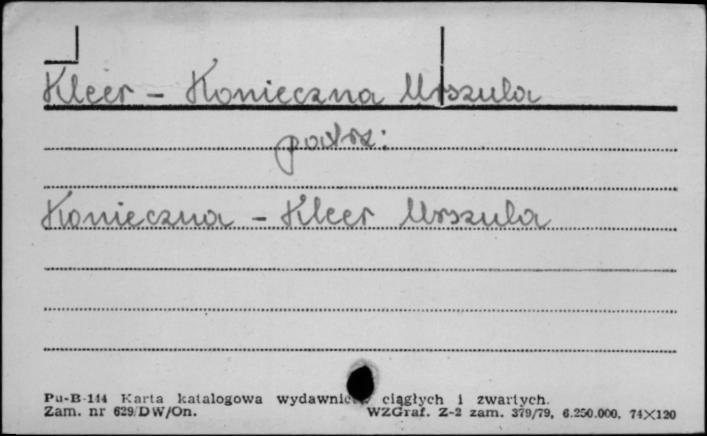 Kleer - Konieczna Urszula
patrz:
Konieczna - Kleer Urszula
Pu-B-144 Karta katalogowa ciągłych i zwartych.
Zam. nr 629/DW/On. WZGraf. Z-2 zam. 379/79, 6.250.000, 74×120